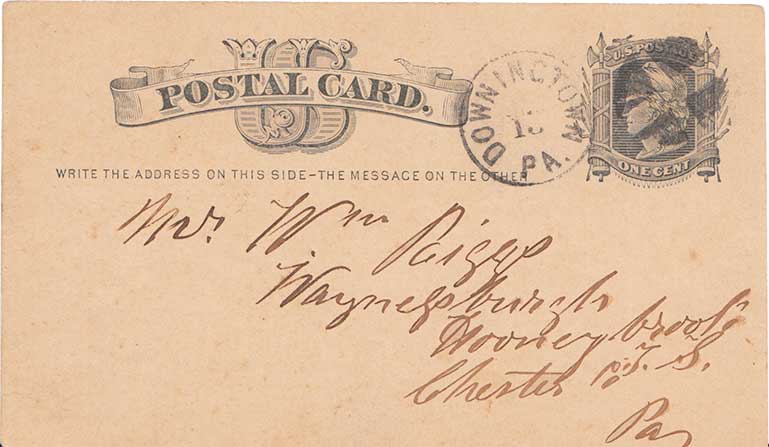 U.S. POSTAGE
US
POSTAL CARD.
DOWNINGTOWN
13
PA.
ONE CENT
WRITE THE ADDRESS ON THIS SIDE–THE MESSAGE ON THE OTHER
Mr. Wm Riggs
Waynesburgh
Honeybrook
Chester Co. T. S.
Pa